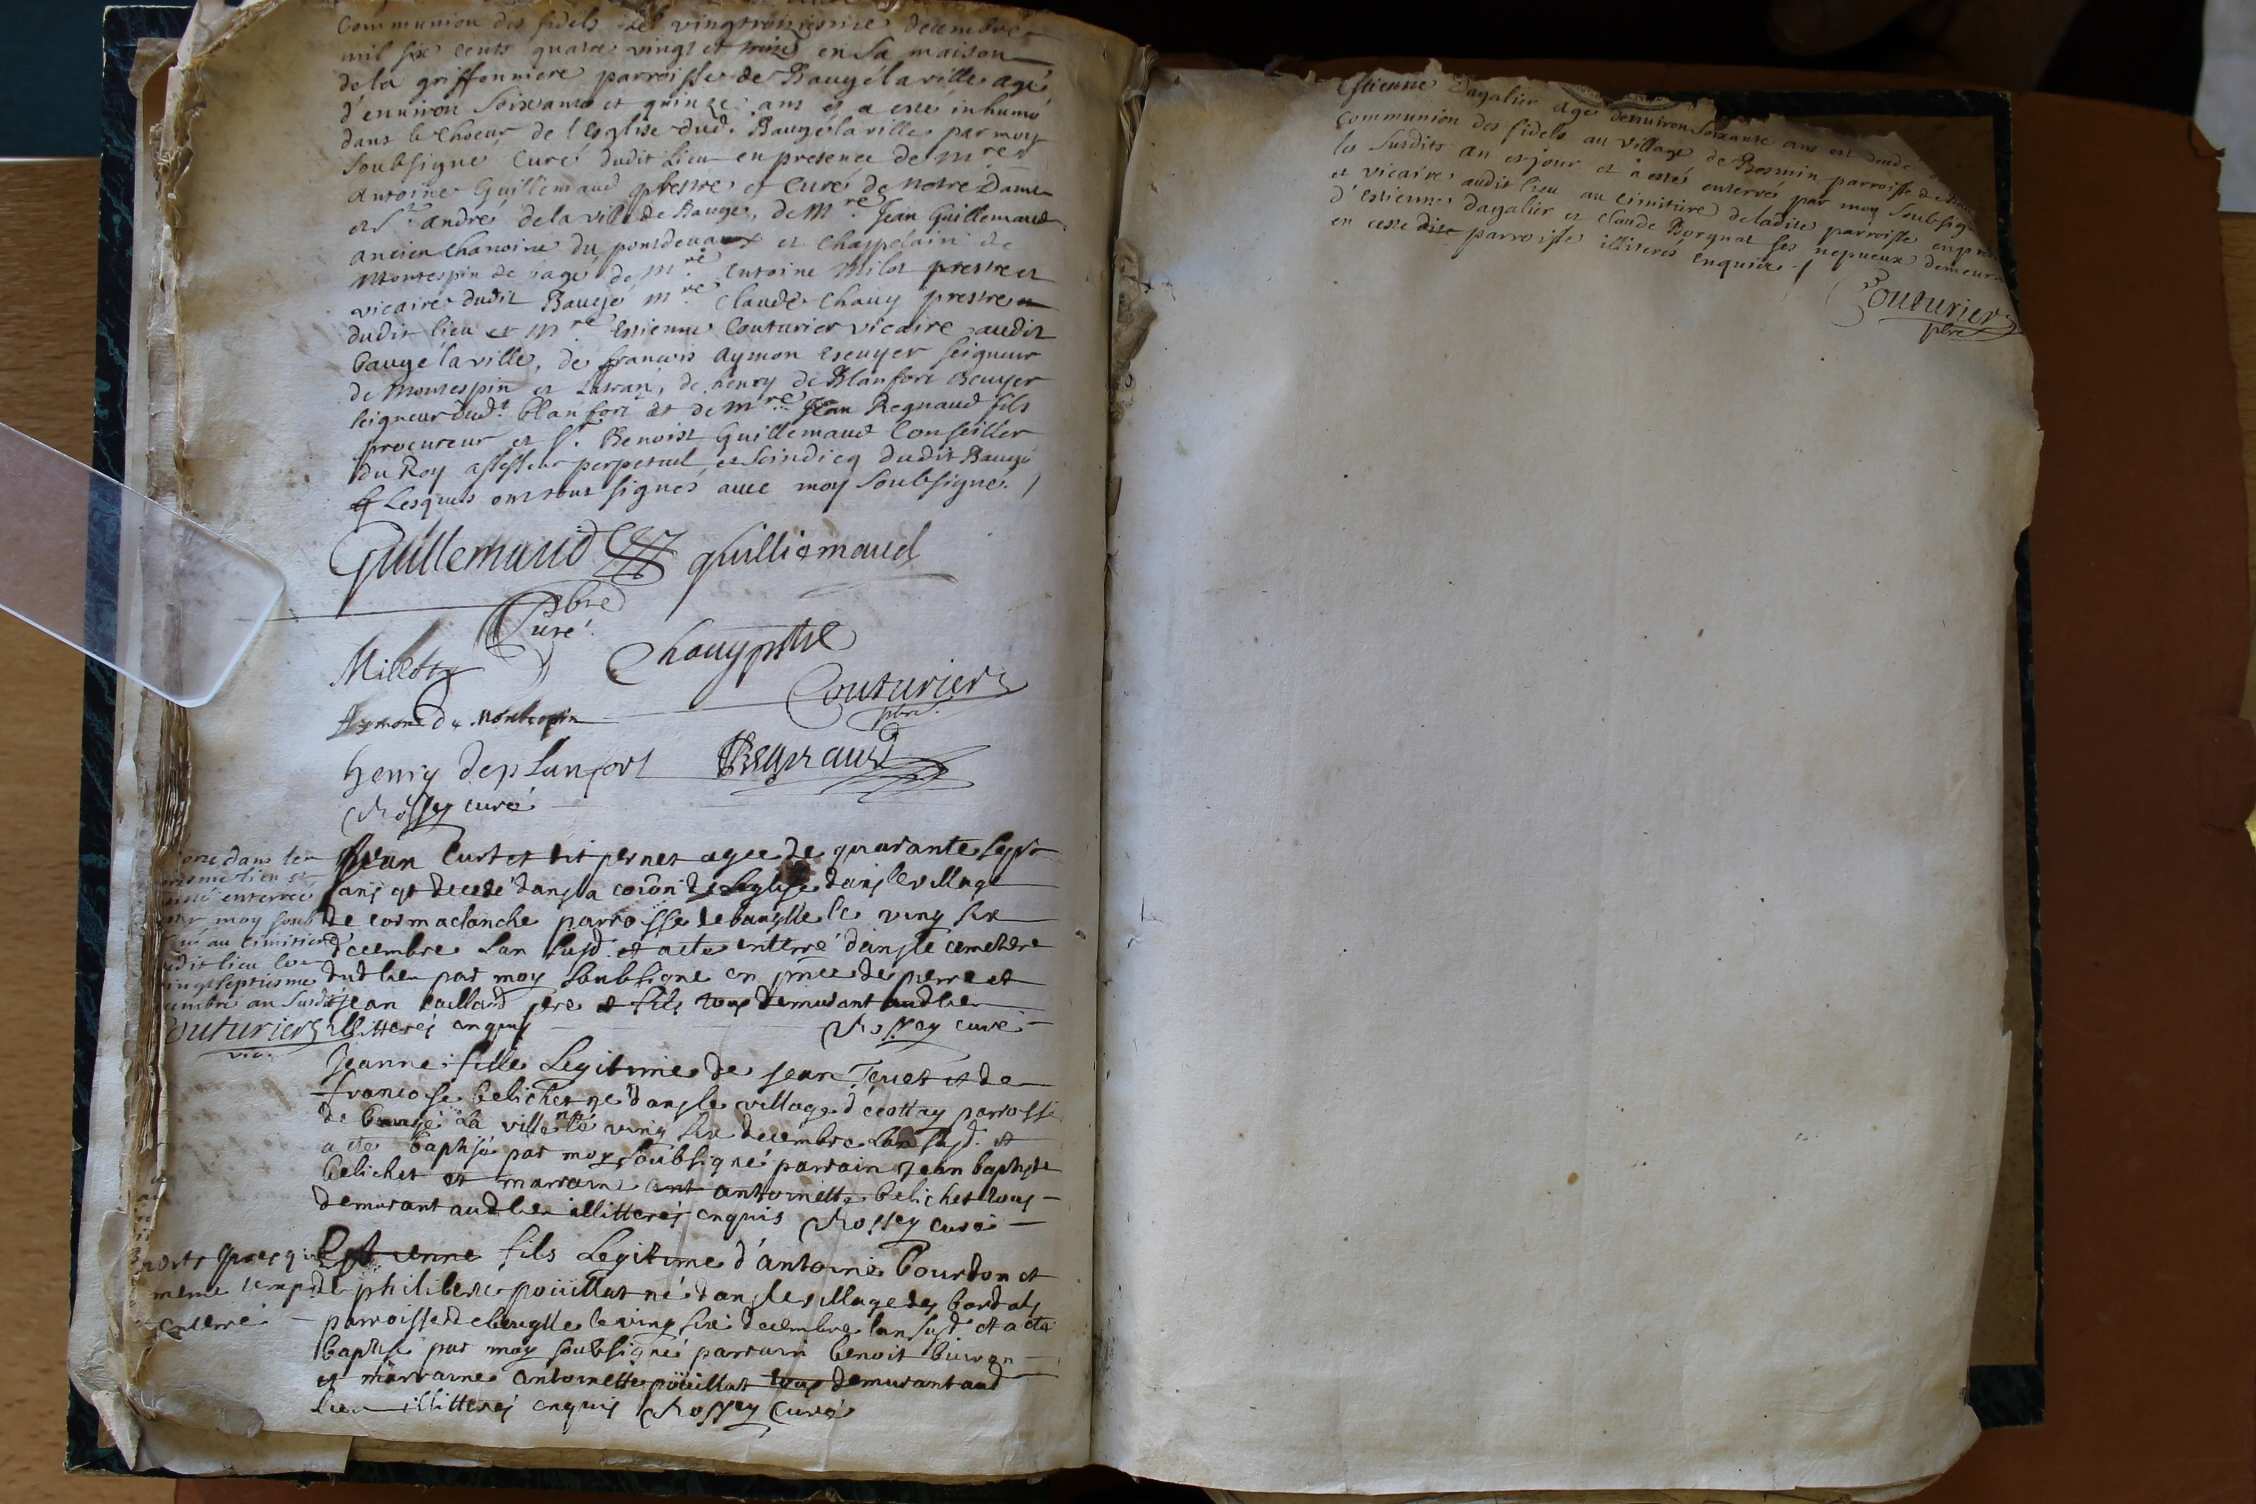 Communion des fidels le vingtroisiesme decembre
mil six cents quatre vingt et treize en sa maison
de la griffonniere parroisse de Baugé la ville agé
d'environ soixante et quinze ans et a esté inhumé
dans le choeur de l'esglise dud. Baugé la ville par moy
soubsigné curé dudit lieu en presence de mres
Antoine Guillemaud prestre et curé de notre Dame
et st andré de la ville de Baugé, de Mre Jean Guillemaud
ancien chanoine du pontdevaux et chappelain de
Montespin de Bagé de Mre Entoine Milot prestre et
vicaire dudit Baugé Mre Claude Chavy prestre
dudit lieu et Mre Estienne Couturier vicaire audit
baugé la ville, de francois Aymon escuyer seigneur
de Montespin et de henry de Blanfort escuyer
seigneur dudt blanfort et de Mre Jean Regnaud fils
procureur et sr. Benoist Guillemaud Conseiller
du Roy assesseur perpetuel et scindicq dudit Baugé
Lesquels ont tous signés avec moy soubsigné.
Guillemaud guilliemaud
pbre
Curé
Millot Chavy pstre
Couturier
pbre
Aymond de Montespin
henry deplanfort Regnaud
Rossey curé
Jean Curtet dit pernet agee de quarante sept
ans et decedé dans la coion de Leglise dans le village
de cormaclanche parroisse de bauglle le ving six
decembre lan susd. et a ete enterré dans le cemetiere
dud lieu par moy soubsigné en pnce de pierre et
jean caillard pere et fils tous demurant aud lieu
illitterés enquis Rossey curé
dans le
mesme lieu et
enterré
par moy soub
au cimitiere
dudit lieu le
vingt septiesme
decembre an susdit
Couturier
vic.
Jeanne fille Legitime de jean Tevet et de
francoise belichet né dans le village d'ecottay parrosse
de bauge la ville le ving six decembre lan susd. et
a ete baptisé par moy soubsigné parrain Jean baptiste
belichet et marrain ant antoinette belichet tous
demurant aud lieu illitterés enquis Rossey curé
Estienne fils Legitime d'antoine bourdon et
de philiberte pouillat né dans le village des bordals
parroisse de bauglle le ving six decembre lan susd et a ete
baptisé par moy soubsigné parrain benoit buiron
et marraine antoinette poüillat tous demurant aud
lieu illitterés enquis Rossey Curé
morts presque
meme temps
enterré
Estienne Dagalier agé denuiron soixante ans est decedé
Communion des fidels au village de Bosmin parroisse de
les susdits an et jour et à estés enterrés par moy soubsigné
et vicaire audit lieu au cimitiere de ladite parroisse en
d'Estienne Dagalier et Claude Borgnat ses nepueux demeur
en ceste dite parroisse illiterés enquis
Couturier
pbre